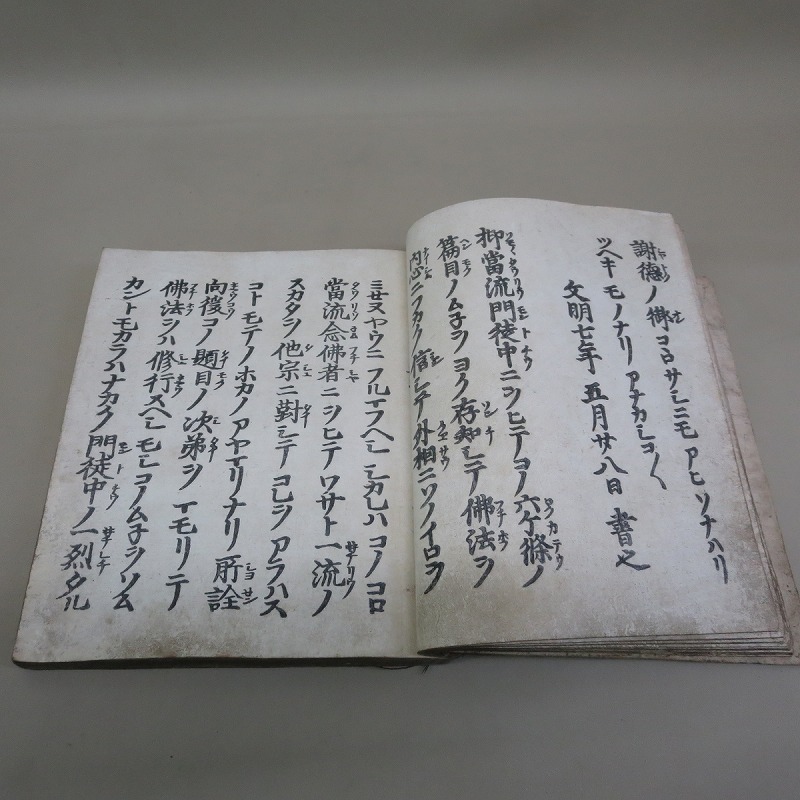 謝徳ノ御コヽロサシニモ アヒソナハリ
ツヘキ モノナリ アナカシコ〱
文明七年 五月廿八日 書之
抑當流門徒中ニヲヒテコノ六ケ條ノ
篇目ノムネヲ ヨク存知シテ 佛法ヲ
内心ニフカク信シテ外相ニソノイロヲ
ミセヌヤウニフルマフヘシ シカレハ コノコロ
當流念佛者ニヲヒテ ワサト一流ノ
スカタヲ 他宗ニ對シテ コレヲ アラハス
コト モテノホカノ アヤマリナリ 所詮
向後コノ題目ノ次第ヲ マモリテ
佛法ヲハ 修行スヘシ モシコノムネヲソム
カントモカラハナカク 門徒中ノ一烈タル